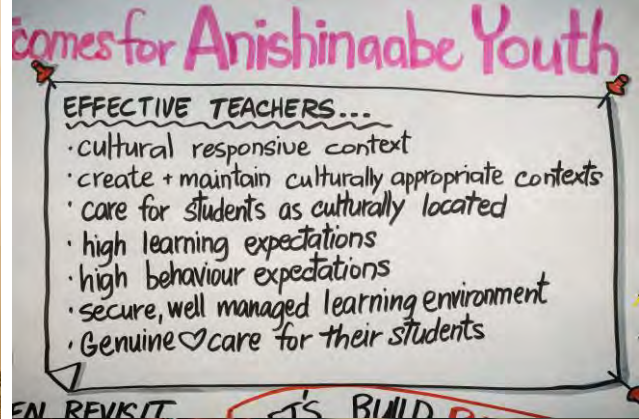 comes for Anishinaabe Youth
EFFECTIVE TEACHERS...
· cultural responsive context
· create + maintain culturally appropriate contexts
· care for students as culturally located
· high learning expectations
· high behaviour expectations
· secure, well managed learning environment
· Genuine ♡ care for their students
EN REVISIT
T'S BUILD